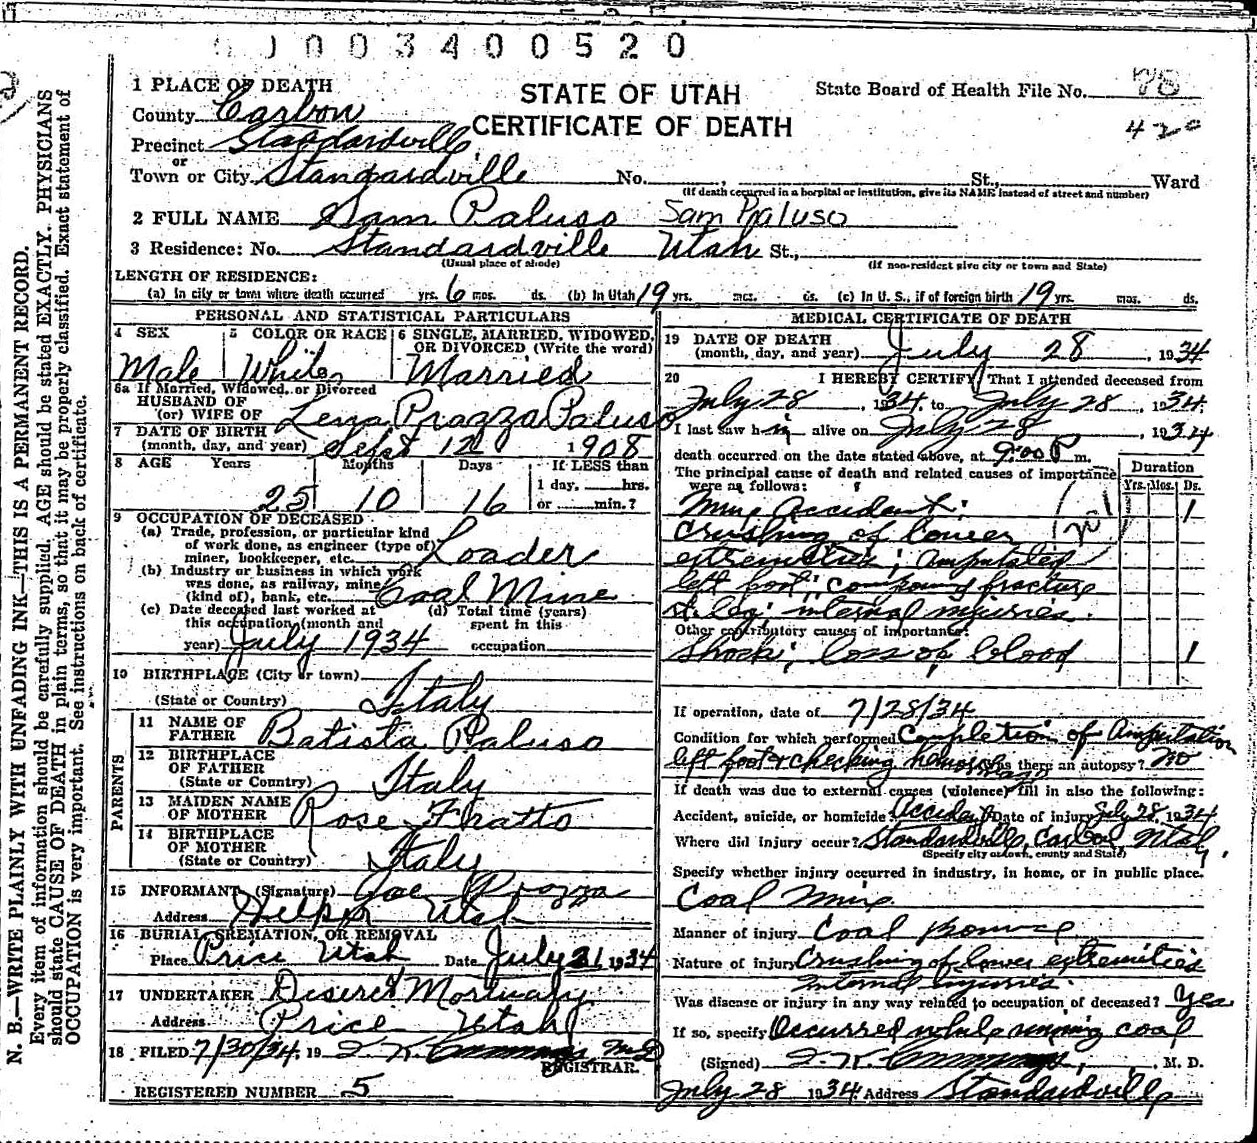 0003400520
1 PLACE OF DEATH
STATE OF UTAH
CERTIFICATE OF DEATH
State Board of Health File No. 78
420
County Carbon
Precinct Standardville
or
Town or City Standardville No. , St., Ward
(If death occurred in a hospital or institution, give its NAME instead of street and number)
2 FULL NAME Sam Paluso Sam Paluso
3 Residence: No. Standardville Utah St.,
(Usual place of abode) (If non-resident give city or town and State)
LENGTH OF RESIDENCE:
(a) In city or town where death occurred yrs. 6 mos. ds. (b) In Utah 19 yrs. mos. ds. (c) In U. S., if of foreign birth 19 yrs. mos. ds.
PERSONAL AND STATISTICAL PARTICULARS
4 SEX
Male
5 COLOR OR RACE
White
6 SINGLE, MARRIED, WIDOWED, OR DIVORCED (Write the word)
Married
6a If Married, Widowed, or Divorced
HUSBAND OF
(or) WIFE OF Lena Prazza Paluso
7 DATE OF BIRTH
(month, day, and year) Sept 12 1908
8 AGE Years Months Days If LESS than
1 day, hrs.
25 10 16 or min.?
9 OCCUPATION OF DECEASED
(a) Trade, profession, or particular kind
of work done, as engineer (type of)
miner, bookkeeper, etc. Loader
(b) Industry or business in which work
was done, as railway, mine
(kind of), bank, etc. Coal Mine
(c) Date deceased last worked at
this occupation (month and
year) July 1934
(d) Total time (years)
spent in this
occupation
10 BIRTHPLACE (City or town)
(State or Country) Italy
PARENTS
11 NAME OF
FATHER Batista Paluso
12 BIRTHPLACE
OF FATHER
(State or Country) Italy
13 MAIDEN NAME
OF MOTHER Rose Fratto
14 BIRTHPLACE
OF MOTHER
(State or Country) Italy
15 INFORMANT (Signature) Joe Prazza
Address Helper Utah
16 BURIAL, CREMATION, OR REMOVAL
Place Price Utah Date July 31 1934
17 UNDERTAKER Deseret Mortuary
Address Price Utah
18 FILED 7/30/34 19 M D
REGISTRAR.
REGISTERED NUMBER 5
MEDICAL CERTIFICATE OF DEATH
19 DATE OF DEATH
(month, day, and year) July 28, 1934
20 I HEREBY CERTIFY, That I attended deceased from
July 28, 1934 to July 28, 1934.
I last saw him alive on July 28 1934
death occurred on the date stated above, at 9:00 P m.
The principal cause of death and related causes of importance
were as follows:
Duration
Yrs. Mos. Ds.
Mine Accident: 1
Crushing of lower
extremities; amputated
left foot; compound fracture
rt. leg; internal injuries.
Other contributory causes of importance:
Shock; loss of blood 1
If operation, date of 7/28/34
Condition for which performed Completion of Amputation
left foot & checking hemorrhage Was there an autopsy? No
If death was due to external causes (violence) fill in also the following:
Accident, suicide, or homicide? Accident Date of injury July 28, 1934
Where did injury occur? Standardville, Carbon, Utah,
(Specify city or town, county and State)
Specify whether injury occurred in industry, in home, or in public place.
Coal Mine
Manner of injury Coal Bounce
Nature of injury Crushing of lower extremities
Internal injuries.
Was disease or injury in any way related to occupation of deceased? Yes
If so, specify Occurred while mining coal
(Signed) , M. D.
July 28 1934 Address Standardville
N. B.—WRITE PLAINLY WITH UNFADING INK—THIS IS A PERMANENT RECORD.
Every item of information should be carefully supplied. AGE should be stated EXACTLY. PHYSICIANS
should state CAUSE OF DEATH in plain terms, so that it may be properly classified. Exact statement of
OCCUPATION is very important. See instructions on back of certificate.